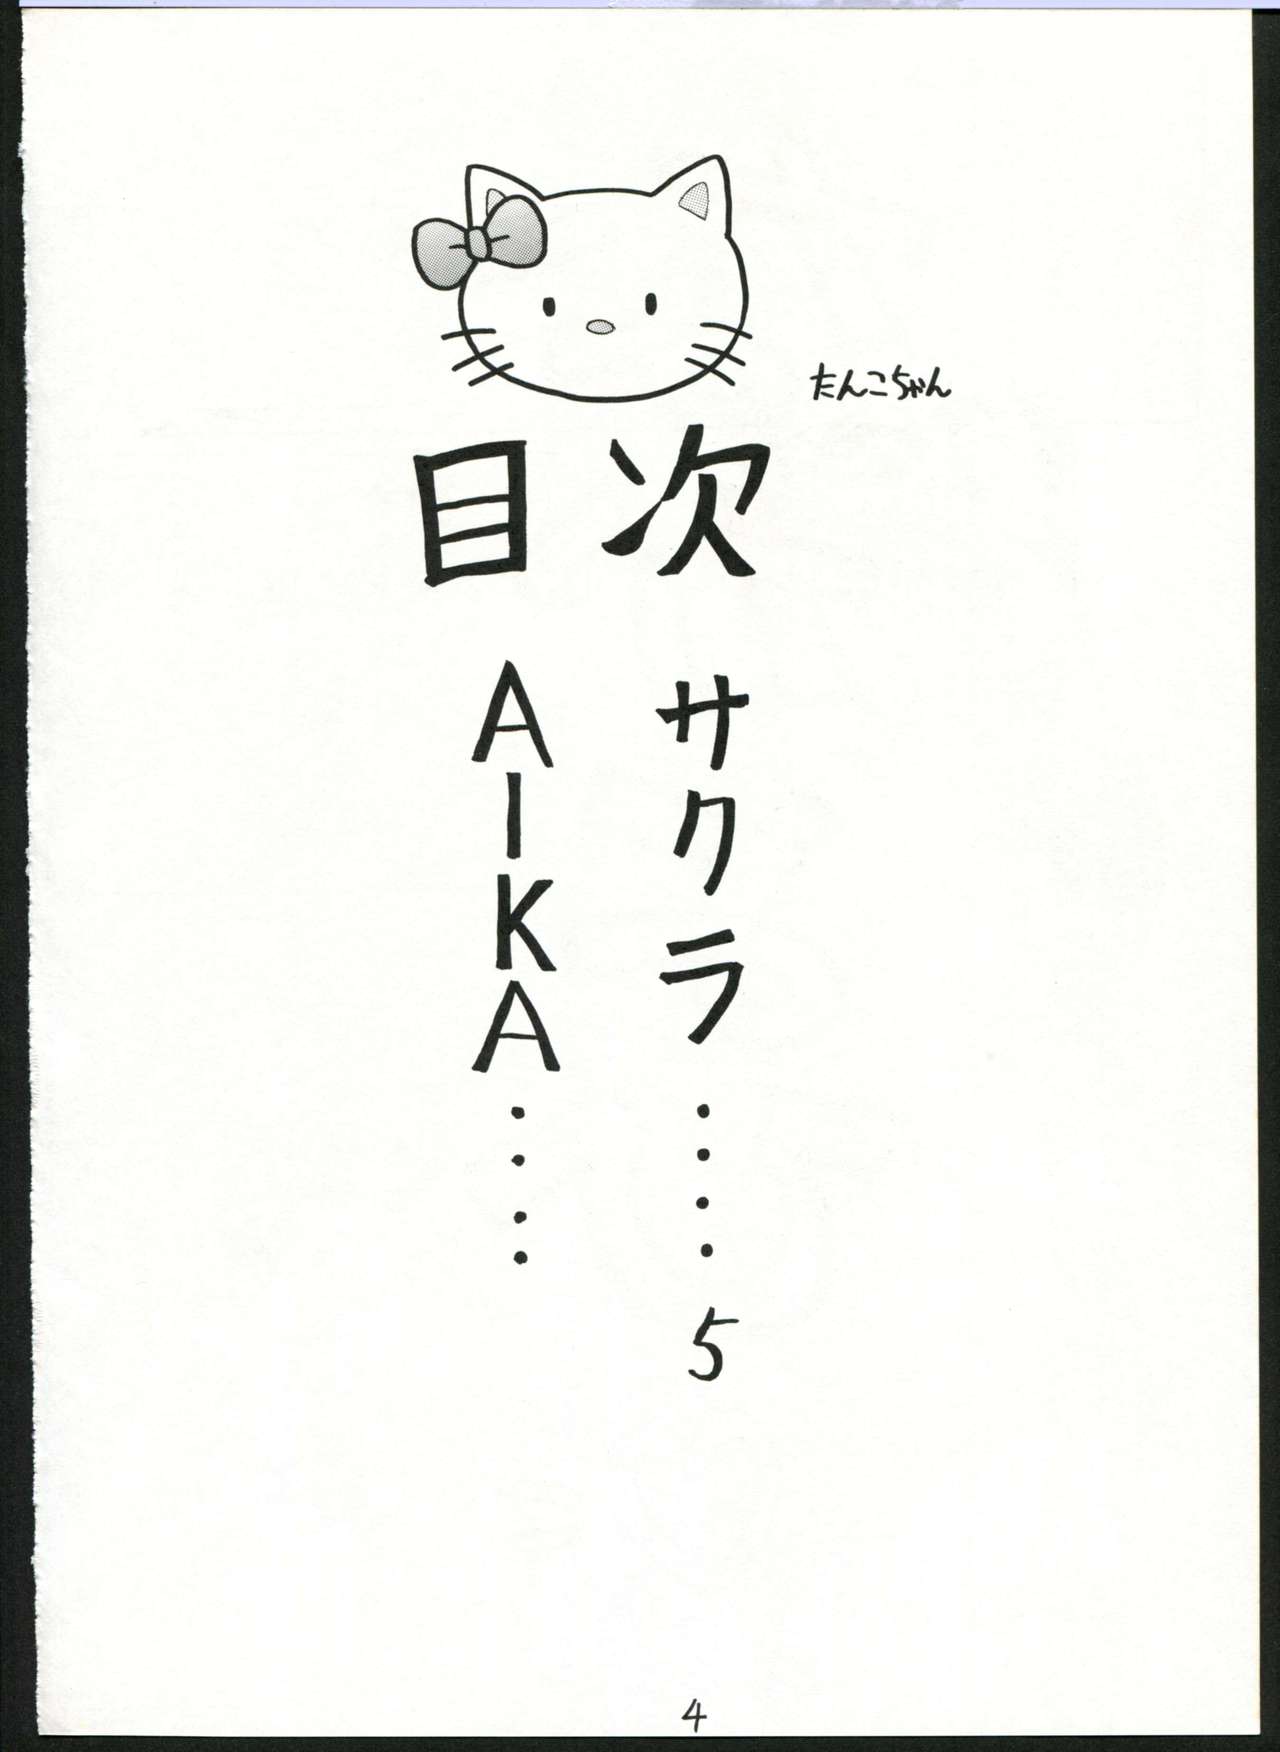 たんこちゃん
目次
サクラ・・・・5
AIKA・・・・
4